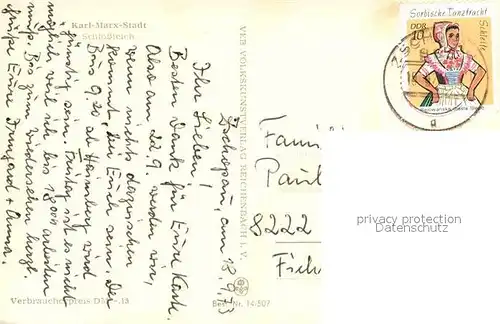 Karl-Marx-Stadt
Schloßteich
Zschopau, am 18.9.73
Ihr Lieben!
Besten Dank für Eure Karte.
Also am 22.9. werden wir,
wenn nichts dazwischen
kommt, bei Euch sein. Der
Bus 9.20 ab Hainberg wird
günstig sein. Freitag ist es nicht
möglich weil ich bis 18.00 arbeiten
muß. Bis zum Wiedersehen herzl.
Grüße Eure Irmgard + Anna.
Verbraucherpreis DM -,15
VEB VOLKSKUNSTVERLAG REICHENBACH I. V.
Best.-Nr. 14/507
Sorbische Tanztracht
Schleife
DDR
10
Fami
Paul
8222
Fich
privacy protection
Datenschutz